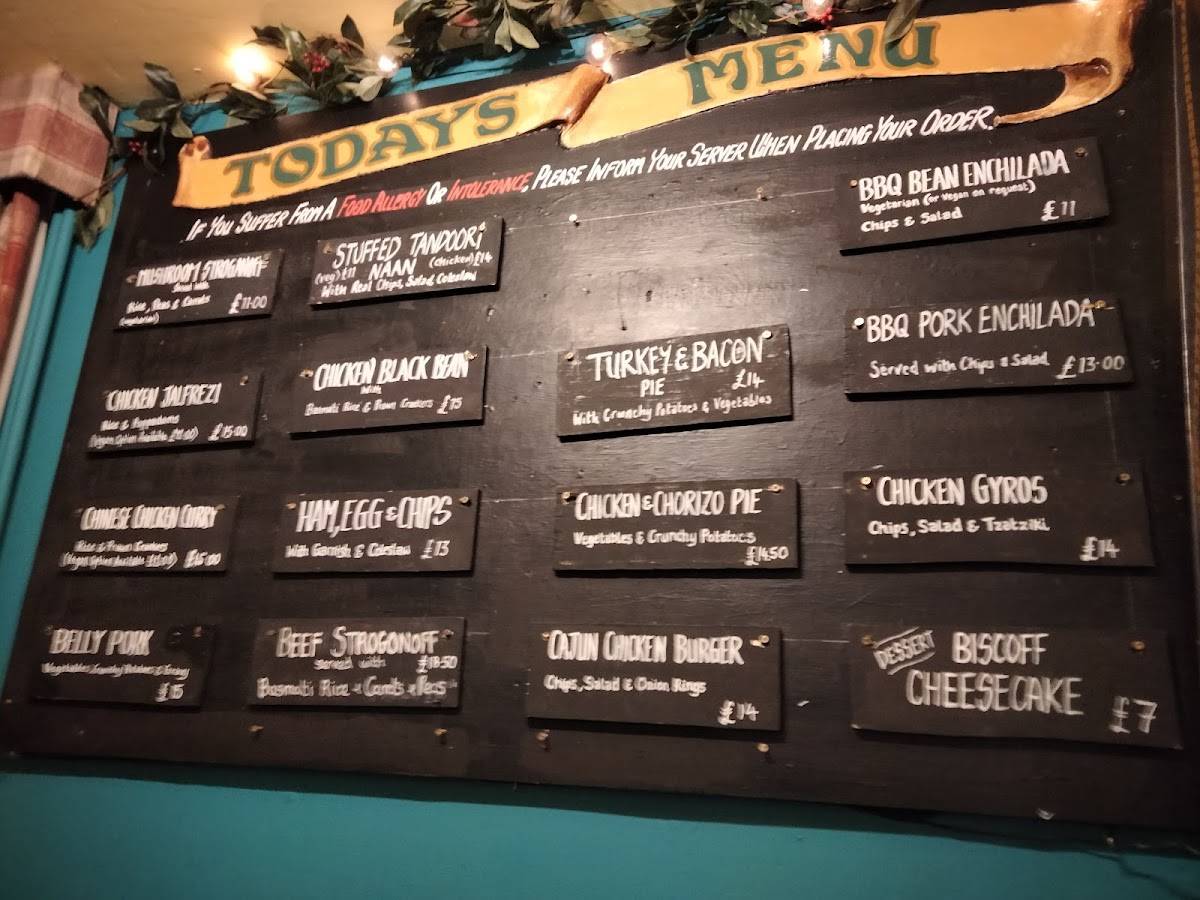 TODAYS MENU
IF YOU SUFFER FROM A FOOD ALLERGY OR INTOLERANCE, PLEASE INFORM YOUR SERVER WHEN PLACING YOUR ORDER.
MUSHROOM STROGANOFF
Served with
Rice, Peas & Carrots
(vegetarian) £11-00
CHICKEN JALFREZI
Rice & Poppadoms
(Vegan Option Available £11.00) £15-00
CHINESE CHICKEN CURRY
Rice & Prawn Crackers
(Vegan Option Available £11.00) £15.00
BELLY PORK
Vegetables, Crunchy Potatoes & Gravy
£15
STUFFED TANDOORI
(veg) £11 NAAN (chicken) £14
With Real Chips, Salad, Coleslaw
CHICKEN BLACK BEAN
With
Basmati Rice & Prawn Crackers £15
HAM, EGG & CHIPS
With Garnish & Coleslaw £13
BEEF STROGONOFF
served with £18.50
Basmati Rice & Carrots & Peas
TURKEY & BACON
PIE £14
With Crunchy Potatoes & Vegetables
CHICKEN & CHORIZO PIE
Vegetables & Crunchy Potatoes
£14.50
CAJUN CHICKEN BURGER
Chips, Salad & Onion Rings
£14
BBQ BEAN ENCHILADA
Vegetarian (or Vegan on request)
Chips & Salad £11
BBQ PORK ENCHILADA
Served with Chips & Salad £13-00
CHICKEN GYROS
Chips, Salad & Tzatziki
£14
DESSERT BISCOFF
CHEESECAKE £7